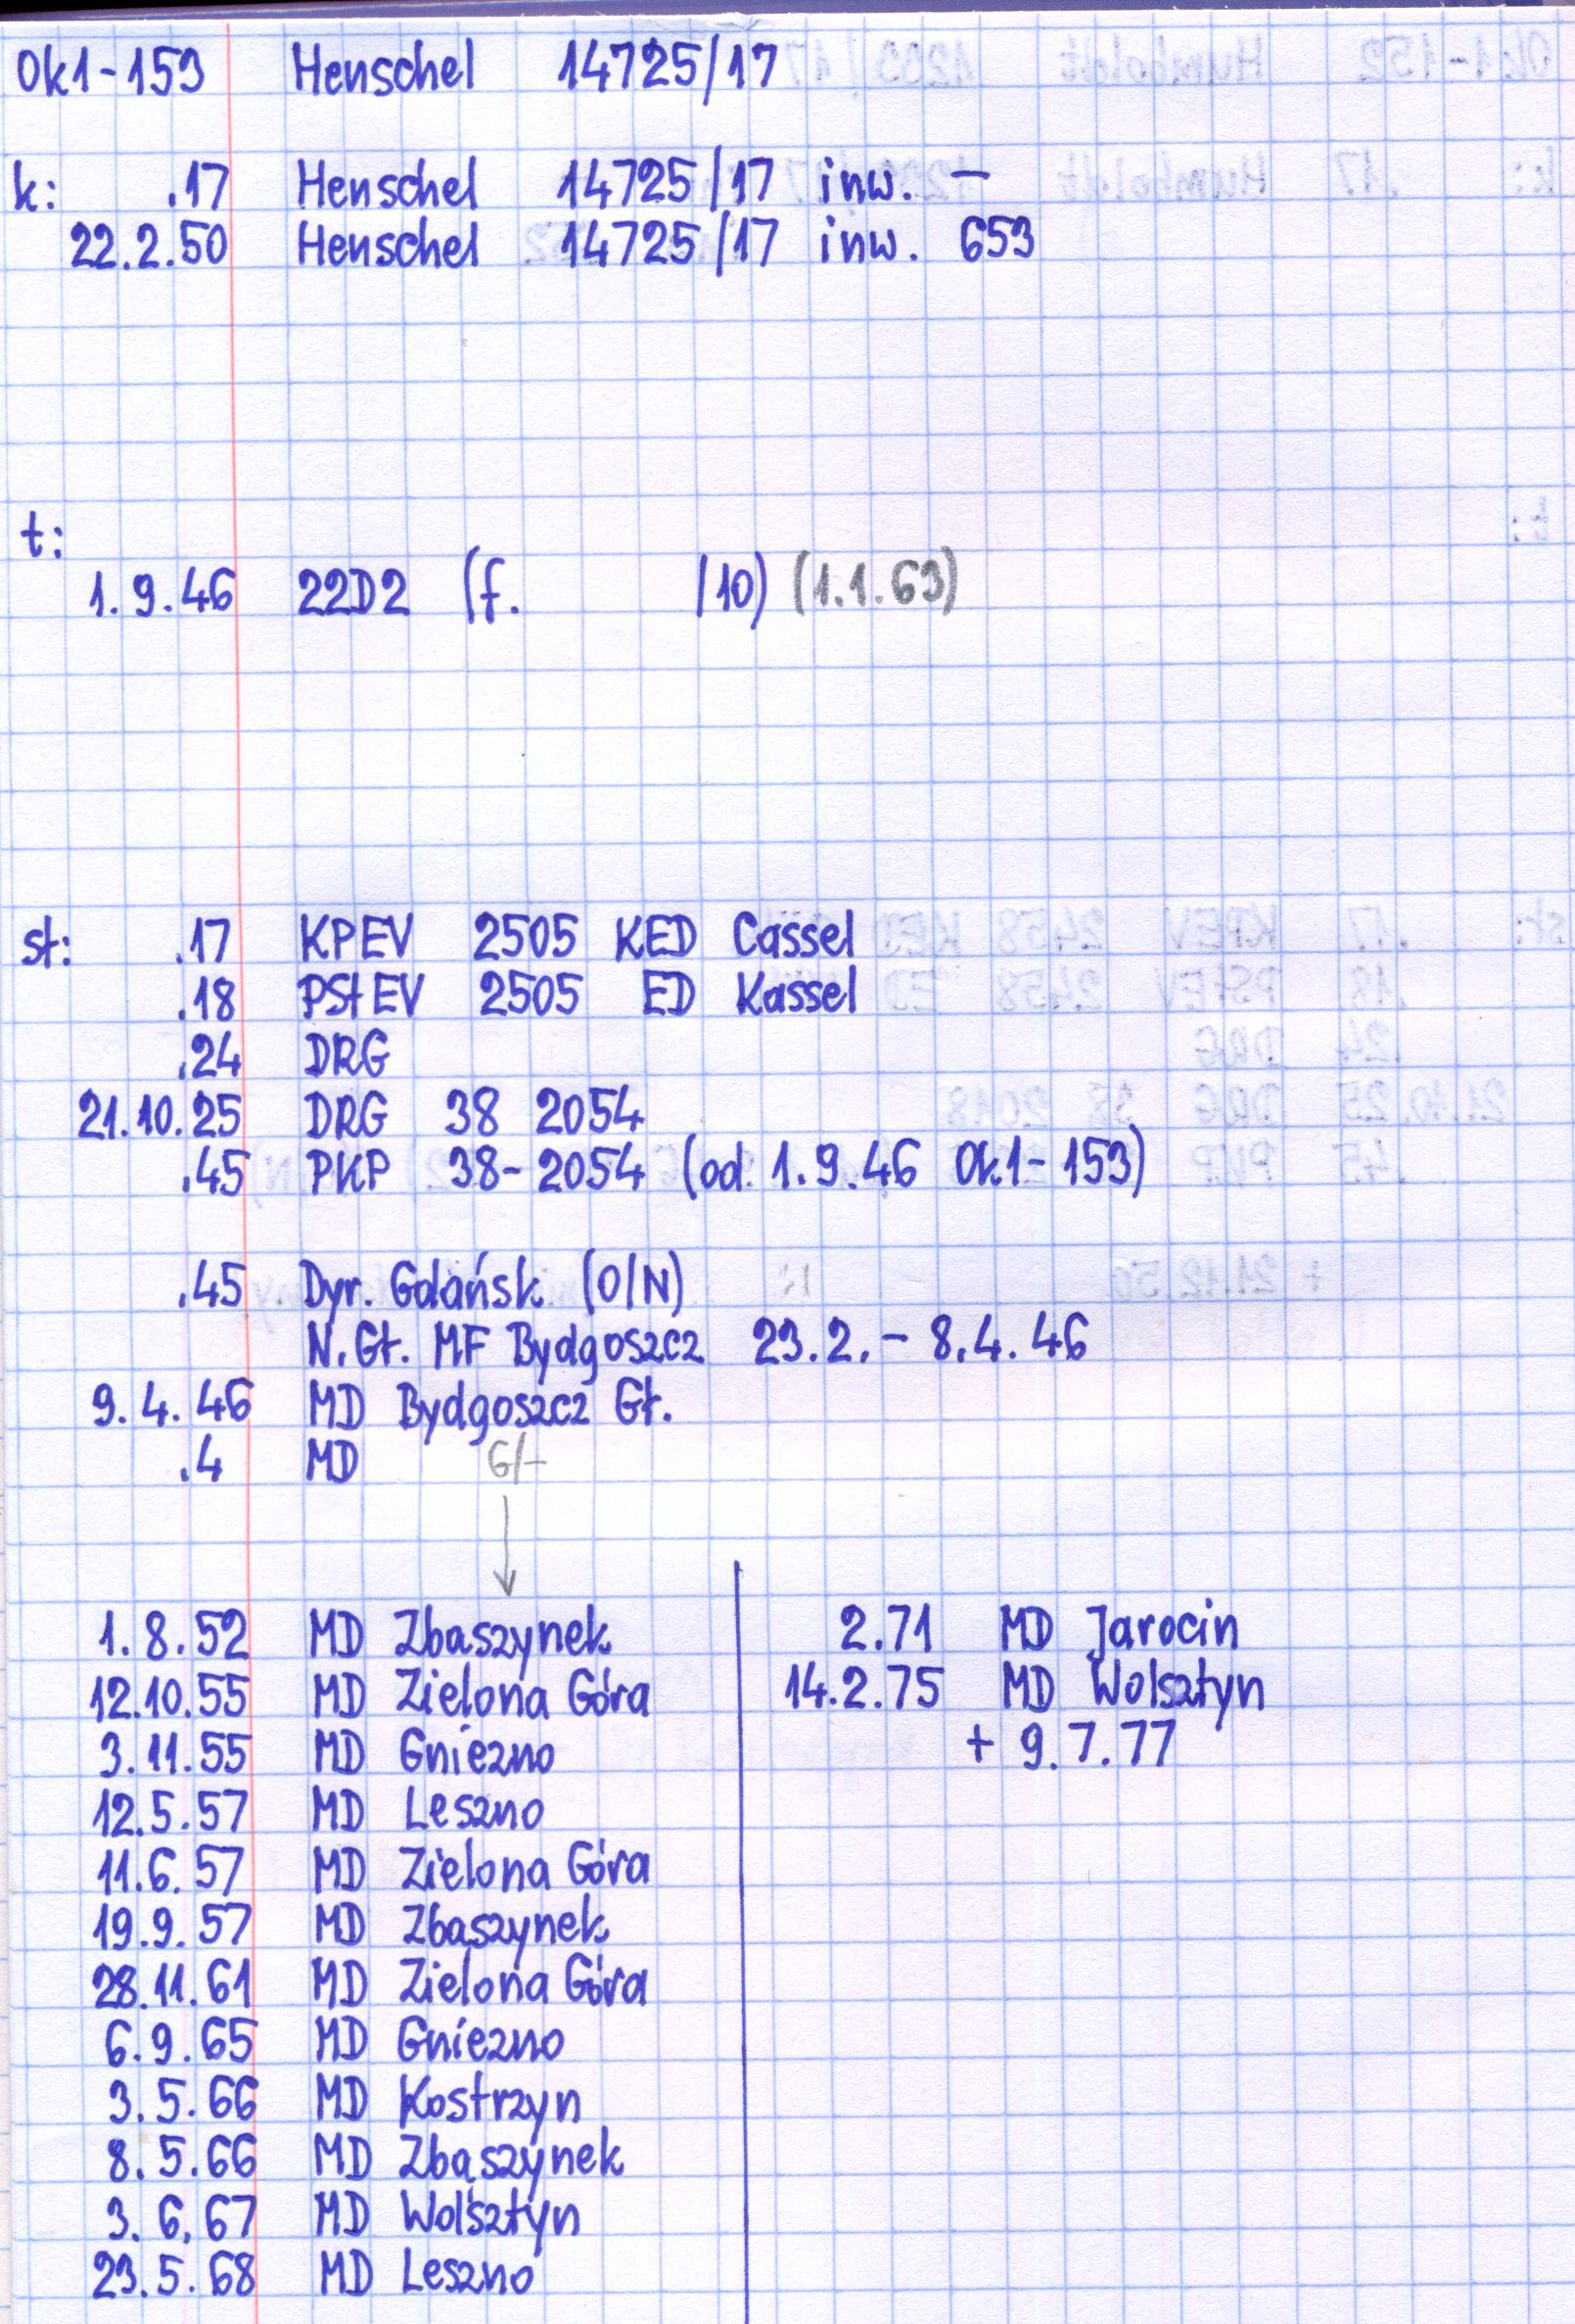 Ok1-153 Henschel 14725/17
k: .17 Henschel 14725/17 inw. –
22.2.50 Henschel 14725/17 inw. 653
t:
1.9.46 22D2 (f. /10) (1.1.63)
st: .17 KPEV 2505 KED Cassel
.18 PStEV 2505 ED Kassel
.24 DRG
21.10.25 DRG 38 2054
.45 PKP 38-2054 (od 1.9.46 Ok1-153)
.45 Dyr. Gdańsk (O/N)
N.Gł. MF Bydgoszcz 23.2.- 8.4.46
9.4.46 MD Bydgoszcz Gł.
.4 MD G/-
1.8.52 MD Zbąszynek
12.10.55 MD Zielona Góra
3.11.55 MD Gniezno
12.5.57 MD Leszno
11.6.57 MD Zielona Góra
19.9.57 MD Zbąszynek
28.11.61 MD Zielona Góra
6.9.65 MD Gniezno
3.5.66 MD Kostrzyn
8.5.66 MD Zbąszynek
3.6.67 MD Wolsztyn
23.5.68 MD Leszno
2.71 MD Jarocin
14.2.75 MD Wolsztyn
+ 9.7.77